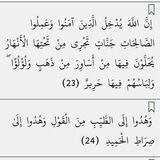 إِنَّ اللَّهَ يُدْخِلُ الَّذِينَ آمَنُوا وَعَمِلُوا
الصَّالِحَاتِ جَنَّاتٍ تَجْرِي مِنْ تَحْتِهَا الْأَنْهَارُ
يُحَلَّوْنَ فِيهَا مِنْ أَسَاوِرَ مِنْ ذَهَبٍ وَلُؤْلُؤًا ۖ
وَلِبَاسُهُمْ فِيهَا حَرِيرٌ (23)
وَهُدُوا إِلَى الطَّيِّبِ مِنَ الْقَوْلِ وَهُدُوا إِلَى
صِرَاطِ الْحَمِيدِ (24)